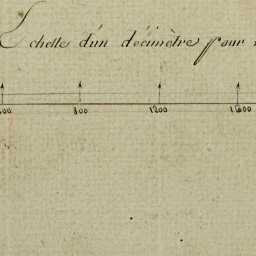 Echelle d'un décimètre pour
800 1200 1600